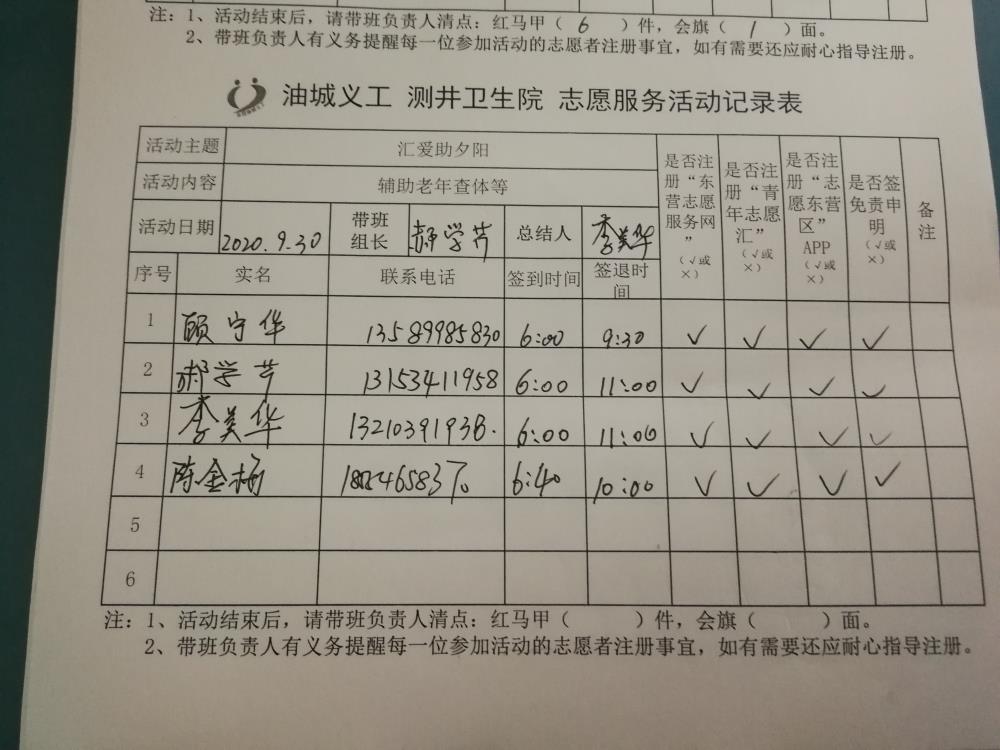 注：1、活动结束后，请带班负责人清点：红马甲（ 6 ）件，会旗（ 1 ）面。
2、带班负责人有义务提醒每一位参加活动的志愿者注册事宜，如有需要还应耐心指导注册。
油城义工 测井卫生院 志愿服务活动记录表
活动主题 汇爱助夕阳 是否注册“东营志愿服务网”（√或×） 是否注册“青年志愿汇”（√或×） 是否注册“志愿东营区”APP（√或×） 是否签免责申明（√或×） 备注
活动内容 辅助老年查体等
活动日期 2020.9.30 带班组长 郝学芹 总结人 李美华
序号 实名 联系电话 签到时间 签退时间
1 顾宁华 13589985830 6:00 9:30 √ √ √ √
2 郝学芹 13153411958 6:00 11:00 √ √ √ √
3 李美华 13210391938. 6:00 11:00 √ √ √ √
4 陈金梅 6:40 10:00 √ √ √ √
5
6
注：1、活动结束后，请带班负责人清点：红马甲（ ）件，会旗（ ）面。
2、带班负责人有义务提醒每一位参加活动的志愿者注册事宜，如有需要还应耐心指导注册。